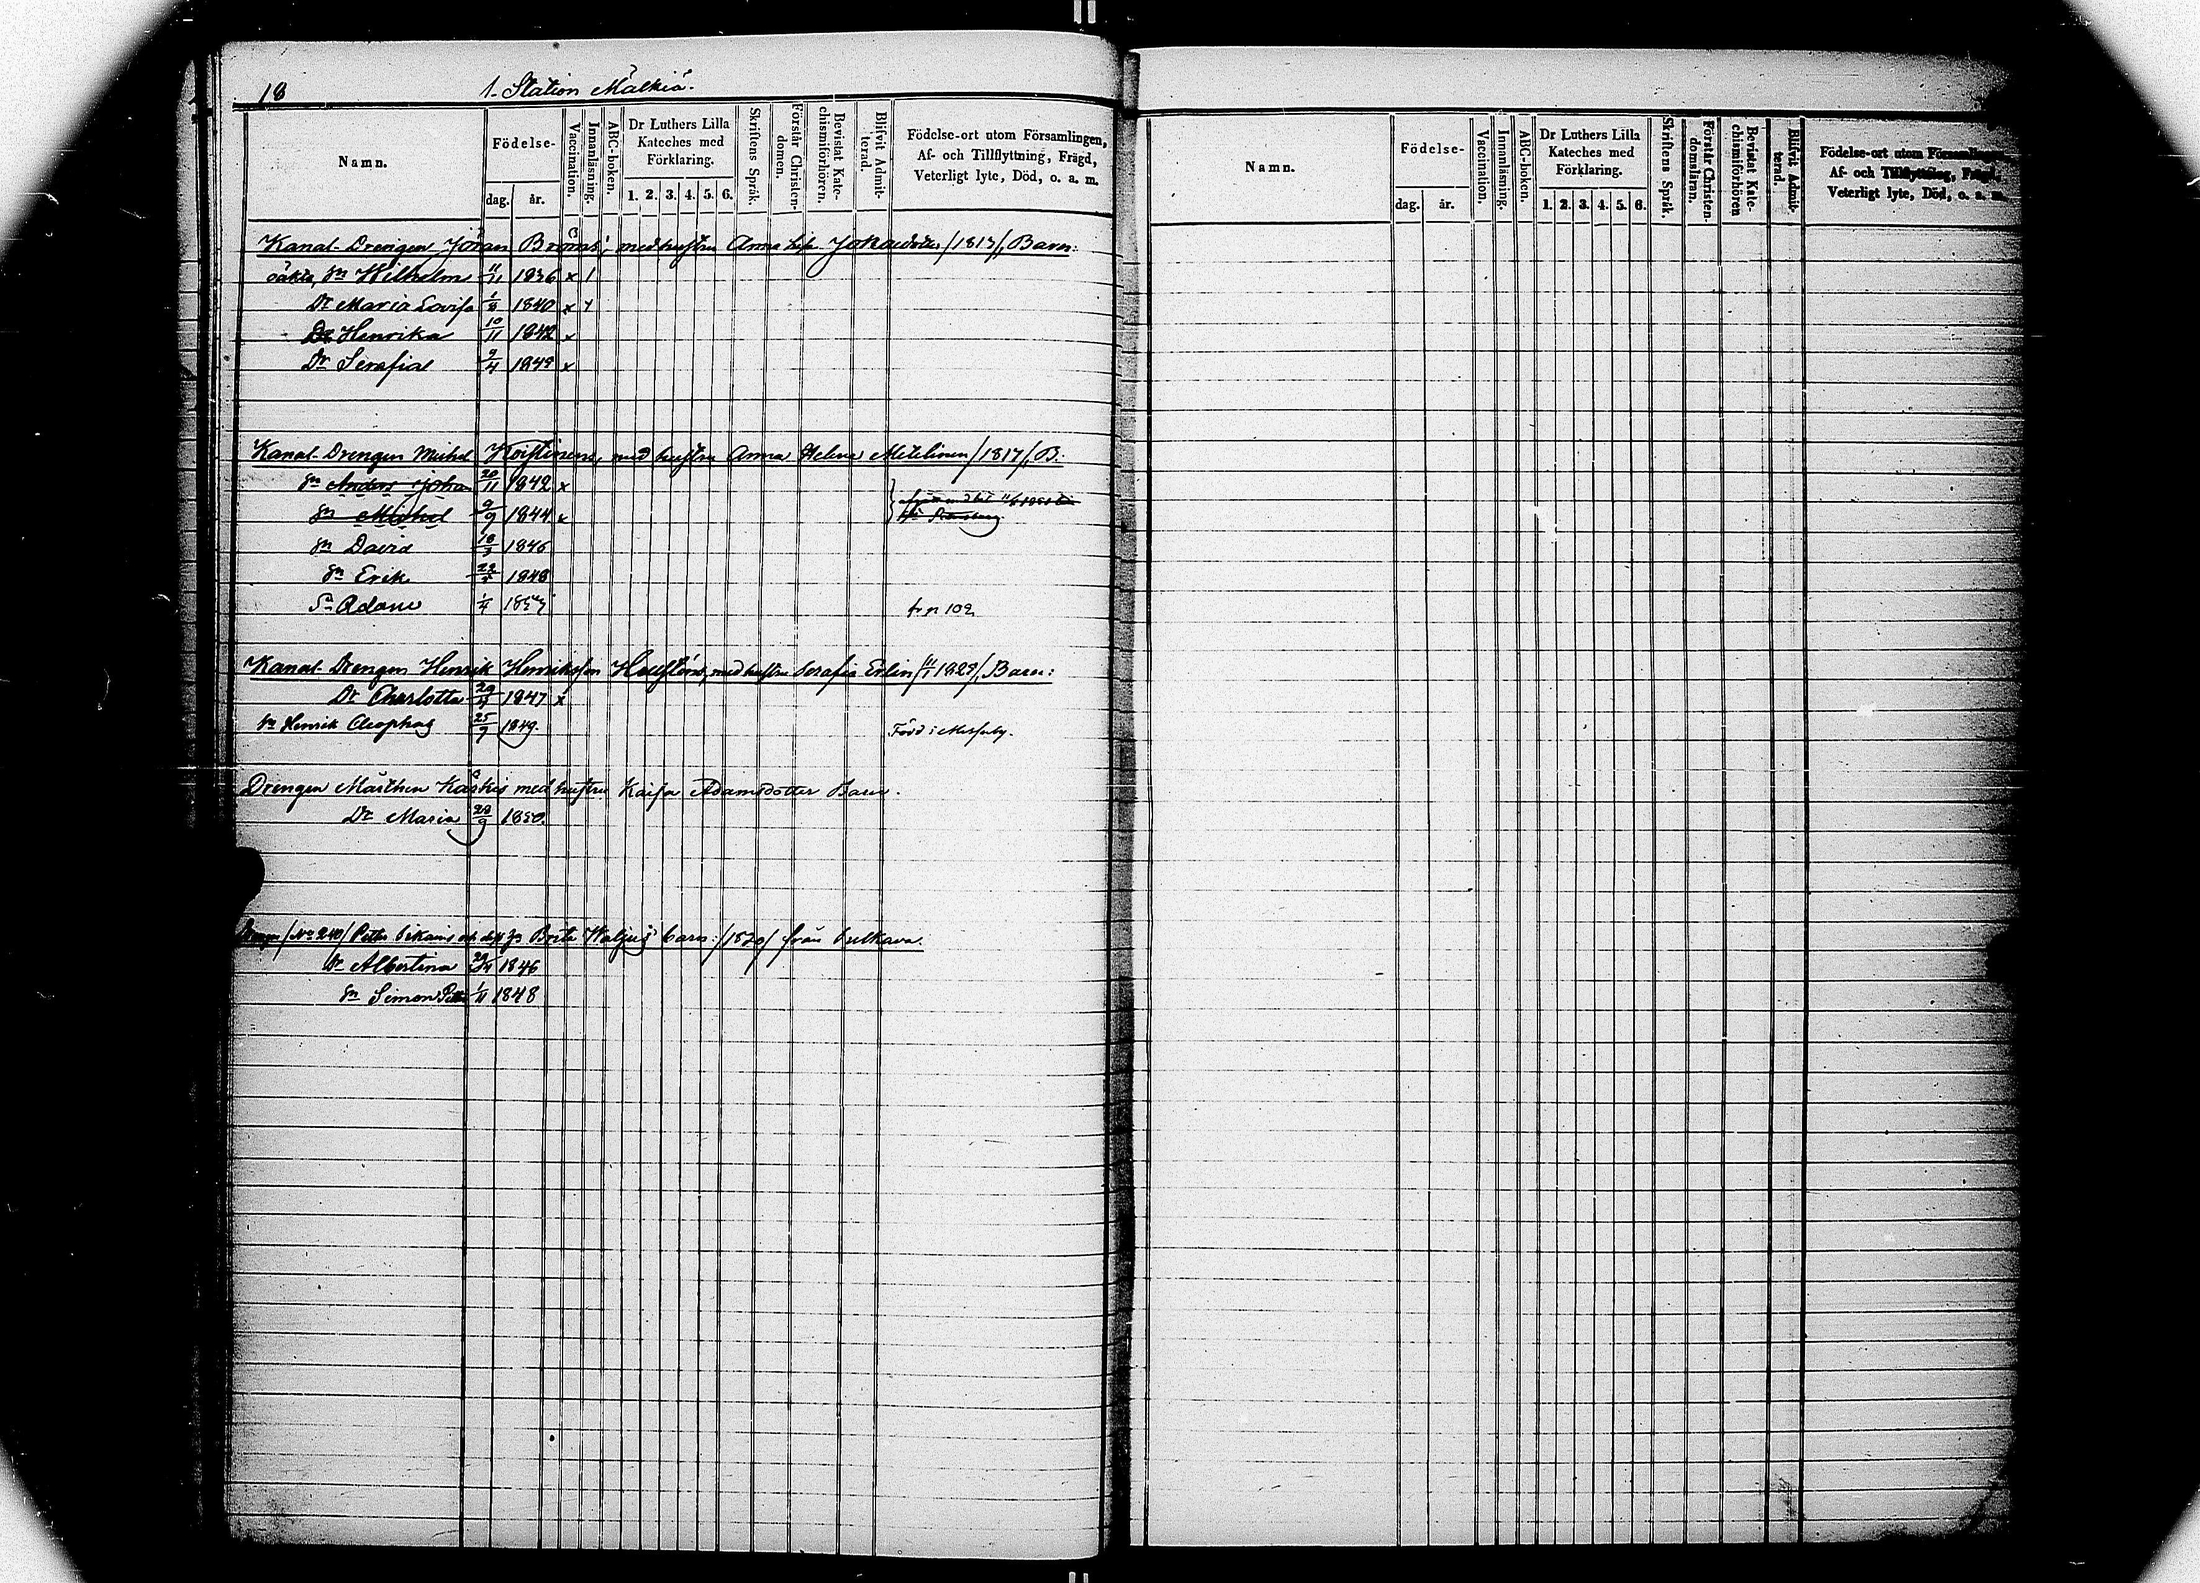 18
1. Station Mälkiä.
Namn.
Födelse-
dag. år.
Vaccination.
Innanläsning.
ABC-boken.
Dr Luthers Lilla Kateches med Förklaring.
1. 2. 3. 4. 5. 6.
Skriftens Språk.
Förstår Christen-domen.
Bevistat Kate-chismiförhören.
Blifvit Admit-terad.
Födelse-ort utom Församlingen, Af- och Tillflyttning, Frägd, Veterligt lyte, Död, o. a. m.
Kanal-Drengen Jöran med hustru Anna /1813/, Barn:
oäkta, Sn Wilhelm 11/11 1836 x 1
Dr Maria Lovisa 1/8 1840 x
Dr Henrika 10/11 1842 x
Dr Serafia 9/4 1849 x
Kanal-Drengen Michel Koistinens, med hustru Anna Helena Metelinen /1817/, B:
Sn Anders Johan 20/11 1842 x
Sn Michel 9/9 1844 x
Sn David 18/3 1846
Sn Erik 1848
Sn Adam 1/4
fr p 102
Kanal-Drengen Henrik Henriksson med hustru Serafia Erlin /11/1 1829/, Barn:
Dr Charlotta 1847 x
Sn Henrik Cleophas 25/9 1849.
Född i
Drengen Mårthen med hustru Kaisa Adamsdotter Barn.
Dr Maria 29/9 1850.
/No 240/ Petter och dess Brita barn: /1820/ från
Dr Albertina 1846
Sn Simon Petter 1/11 1848
Namn.
Födelse-
dag. år.
Vaccination.
Innanläsning.
ABC-boken.
Dr Luthers Lilla Kateches med Förklaring.
1. 2. 3. 4. 5. 6.
Skriftens Språk.
Förstår Christen-domsläran.
Bevistat Kate-chismiförhören
Blifvit Admit-terad.
Födelse-ort utom Församlingen
Af- och Tillflyttning, Frägd,
Veterligt lyte, Död, o. a. m.